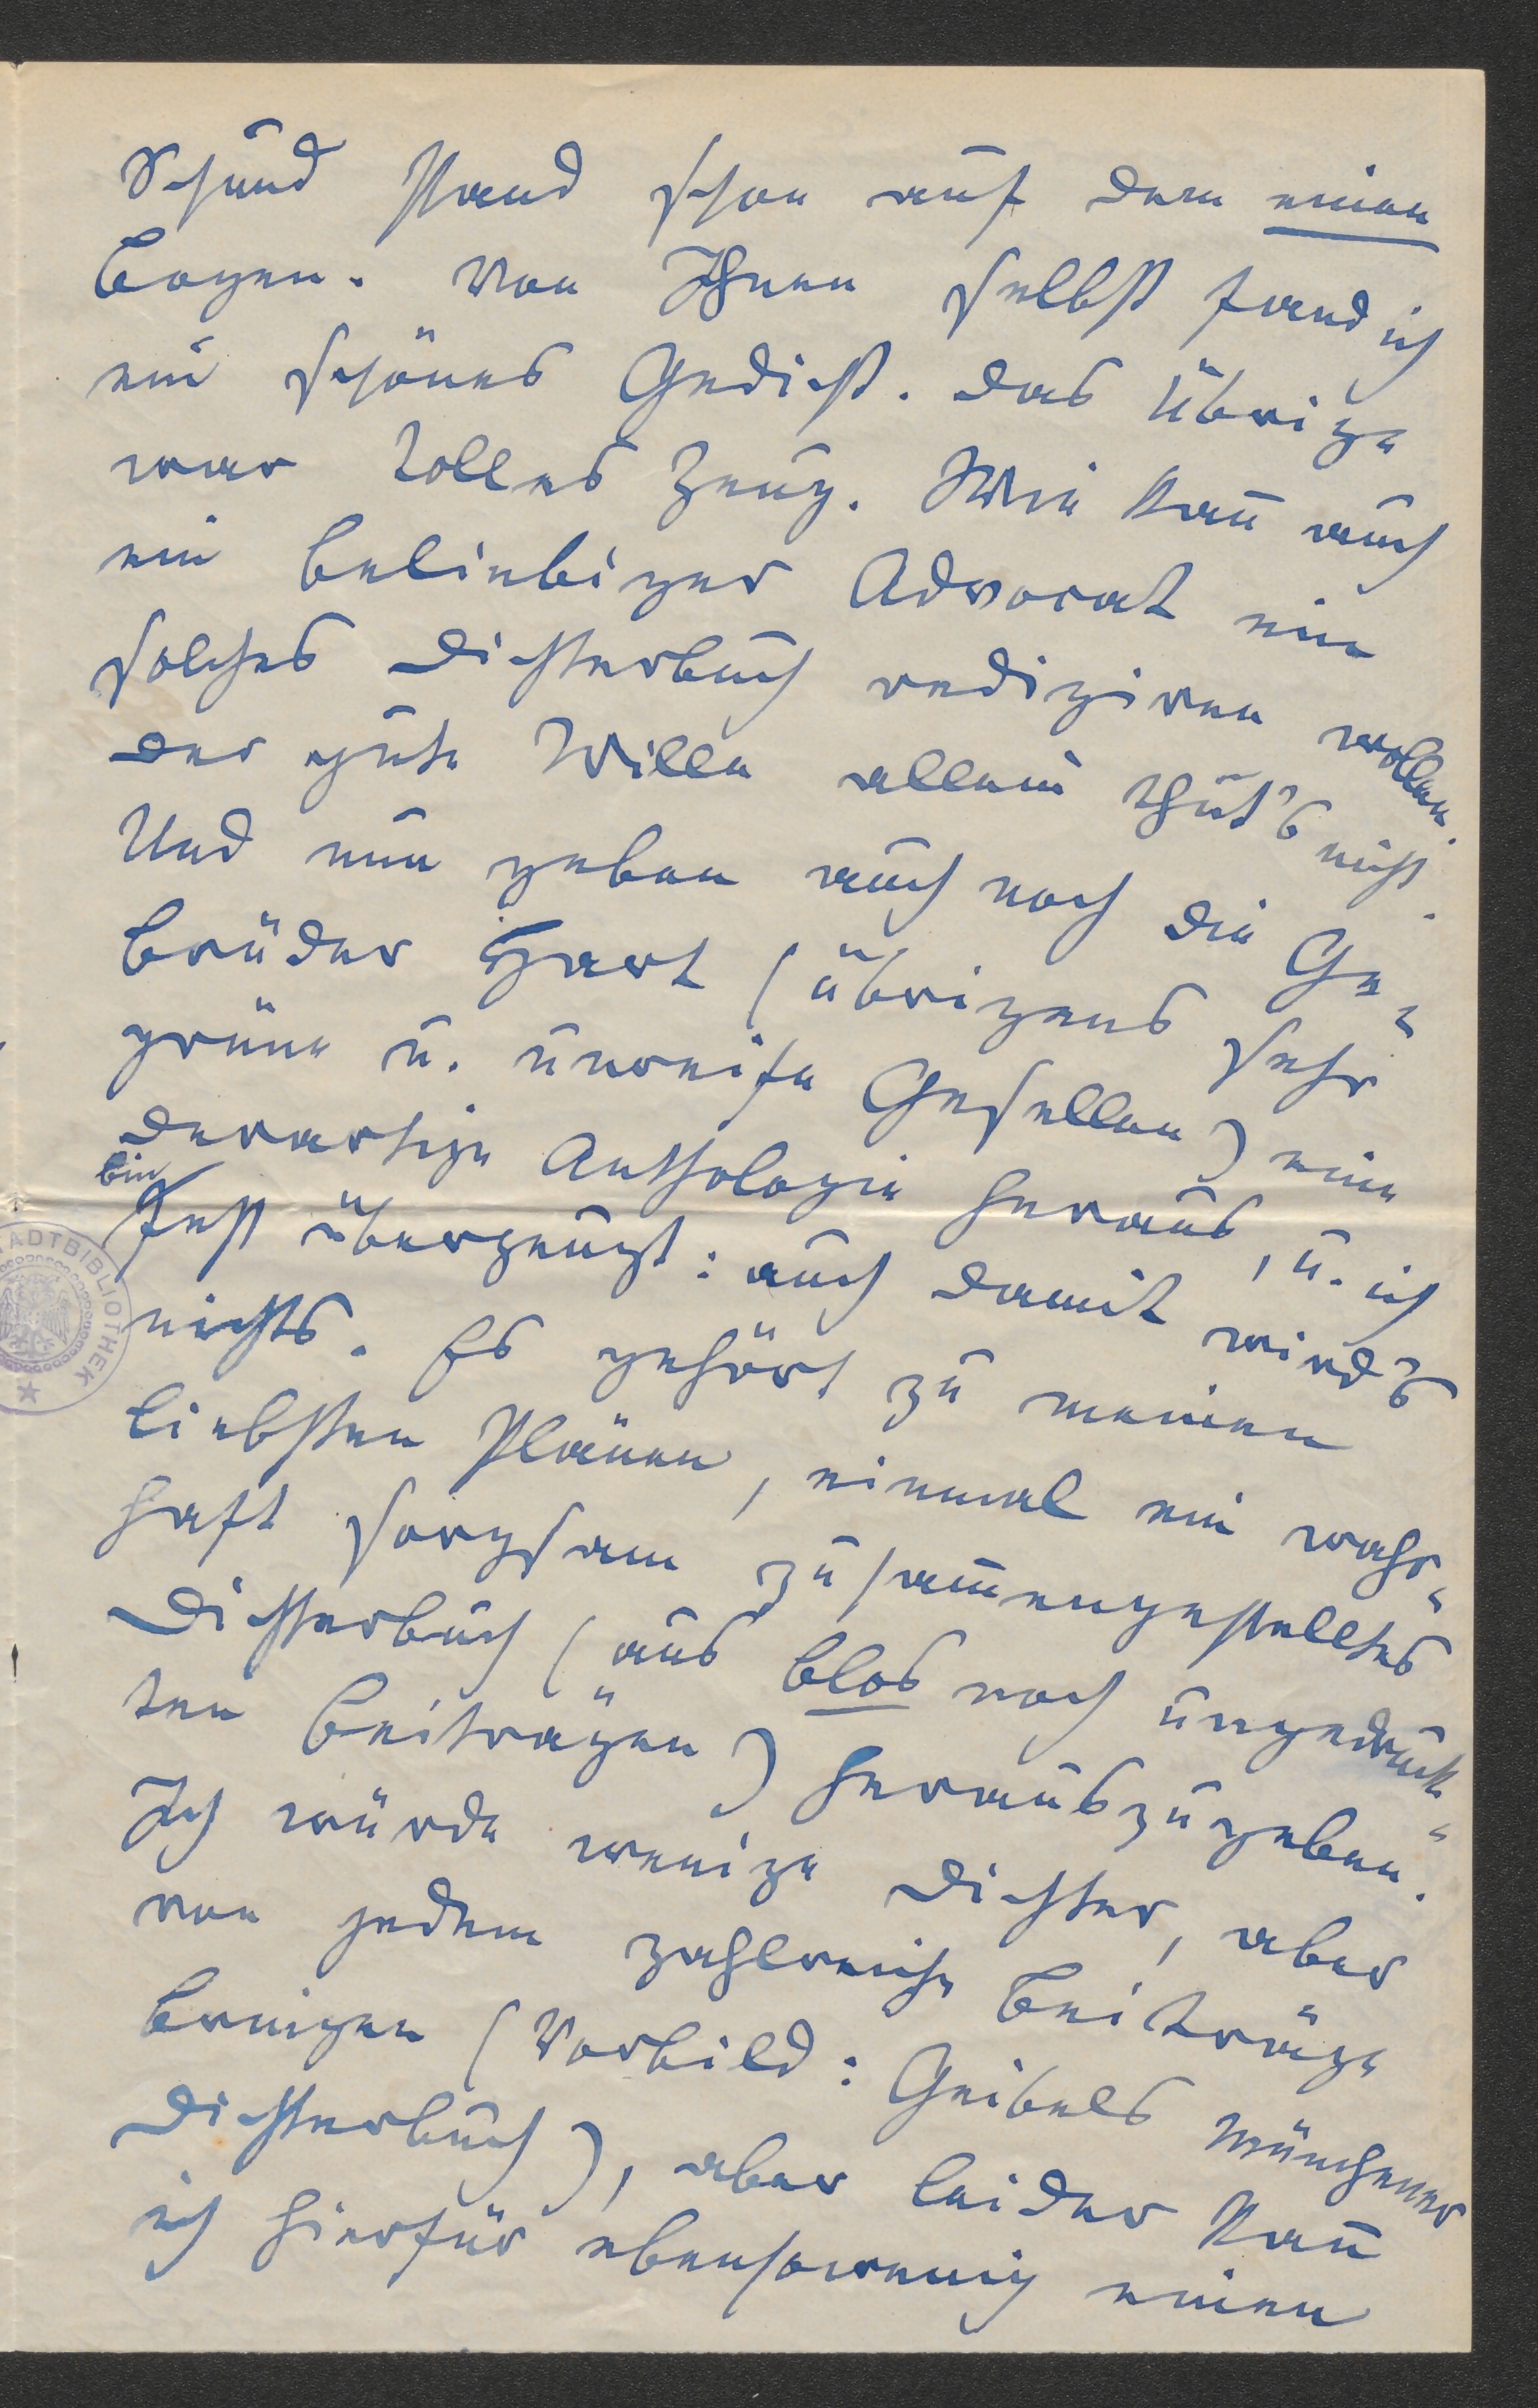 Schund stand schon auf dem einen
Bogen. Von Ihnen selbst fand ich
ein schönes Gedicht. Das Übrige
war tolles Zeug. Wie kañ auch
ein beliebiger Advocat ein
solches Dichterbuch redigiren wollen.
Der gute Wille allein thut's nicht.
Und nun geben auch noch die Ge-
brüder Hart (übrigens sehr
grüne u. unreife Gesellen) eine
derartige Anthologie heraus, u. ich
bin
fest überzeugt: auch damit wird's
nichts. Es gehört zu meinen
liebsten Plänen, einmal ein wahr-
haft sorgsam zusam̄engestelltes
Dichterbuch (aus blos noch ungedruck-
ten Beiträgen) herauszugeben.
Ich würde wenige Dichter, aber
von jedem zahlreiche Beiträge
bringen (Vorbild: Geibels Münchener
Dichterbuch), aber leider kañ
ich hierfür ebensowenig einen
STADTBIBLIOTHEK